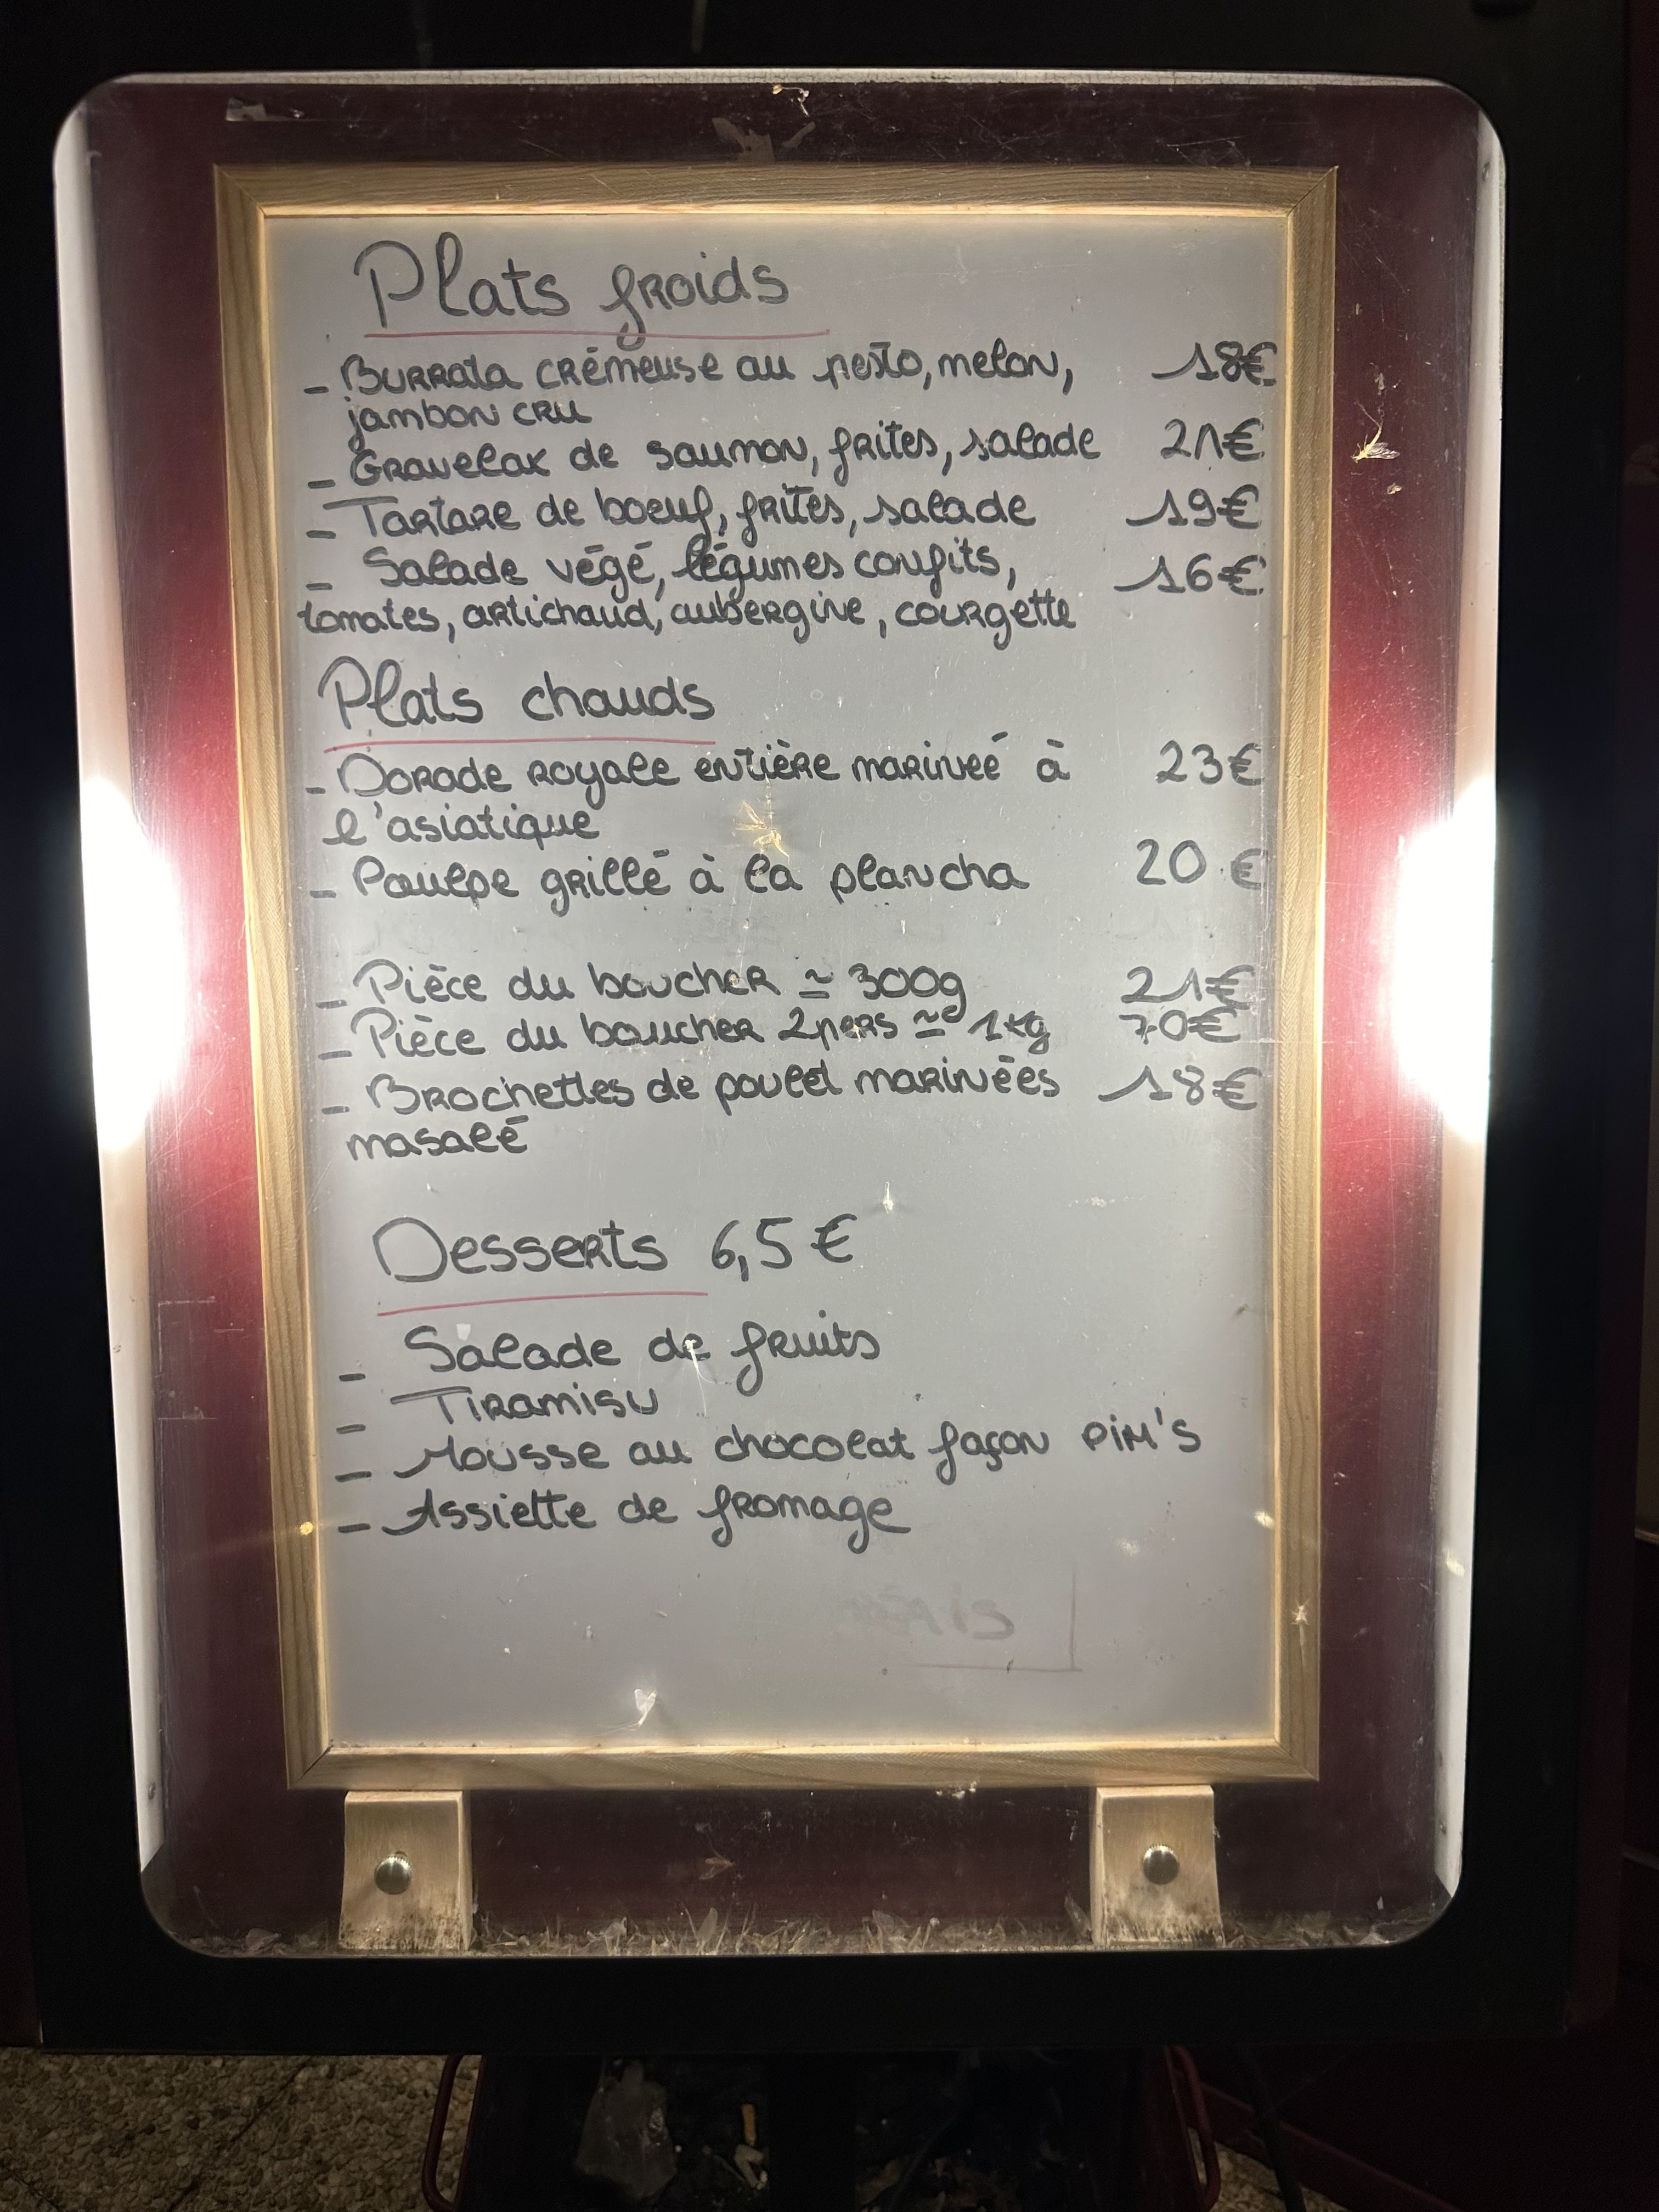 Plats froids
- Burrata crémeuse au pesto, melon, 18€
jambon cru
- Gravelax de saumon, frites, salade 21€
- Tartare de boeuf, frites, salade 19€
- Salade végé, légumes confits, 16€
tomates, artichaud, aubergine, courgette
Plats chauds
- Dorade royale entière marineé à 23€
l'asiatique
- Poulpe grillé à la plancha 20 €
- Pièce du boucher ≃ 300g 21€
- Pièce du boucher 2pers ≃ 1kg 70€
- Brochettes de poulet marinées 18€
masalé
Desserts 6,5 €
- Salade de fruits
- Tiramisu
- Mousse au chocolat façon PiM's
- Assiette de fromage